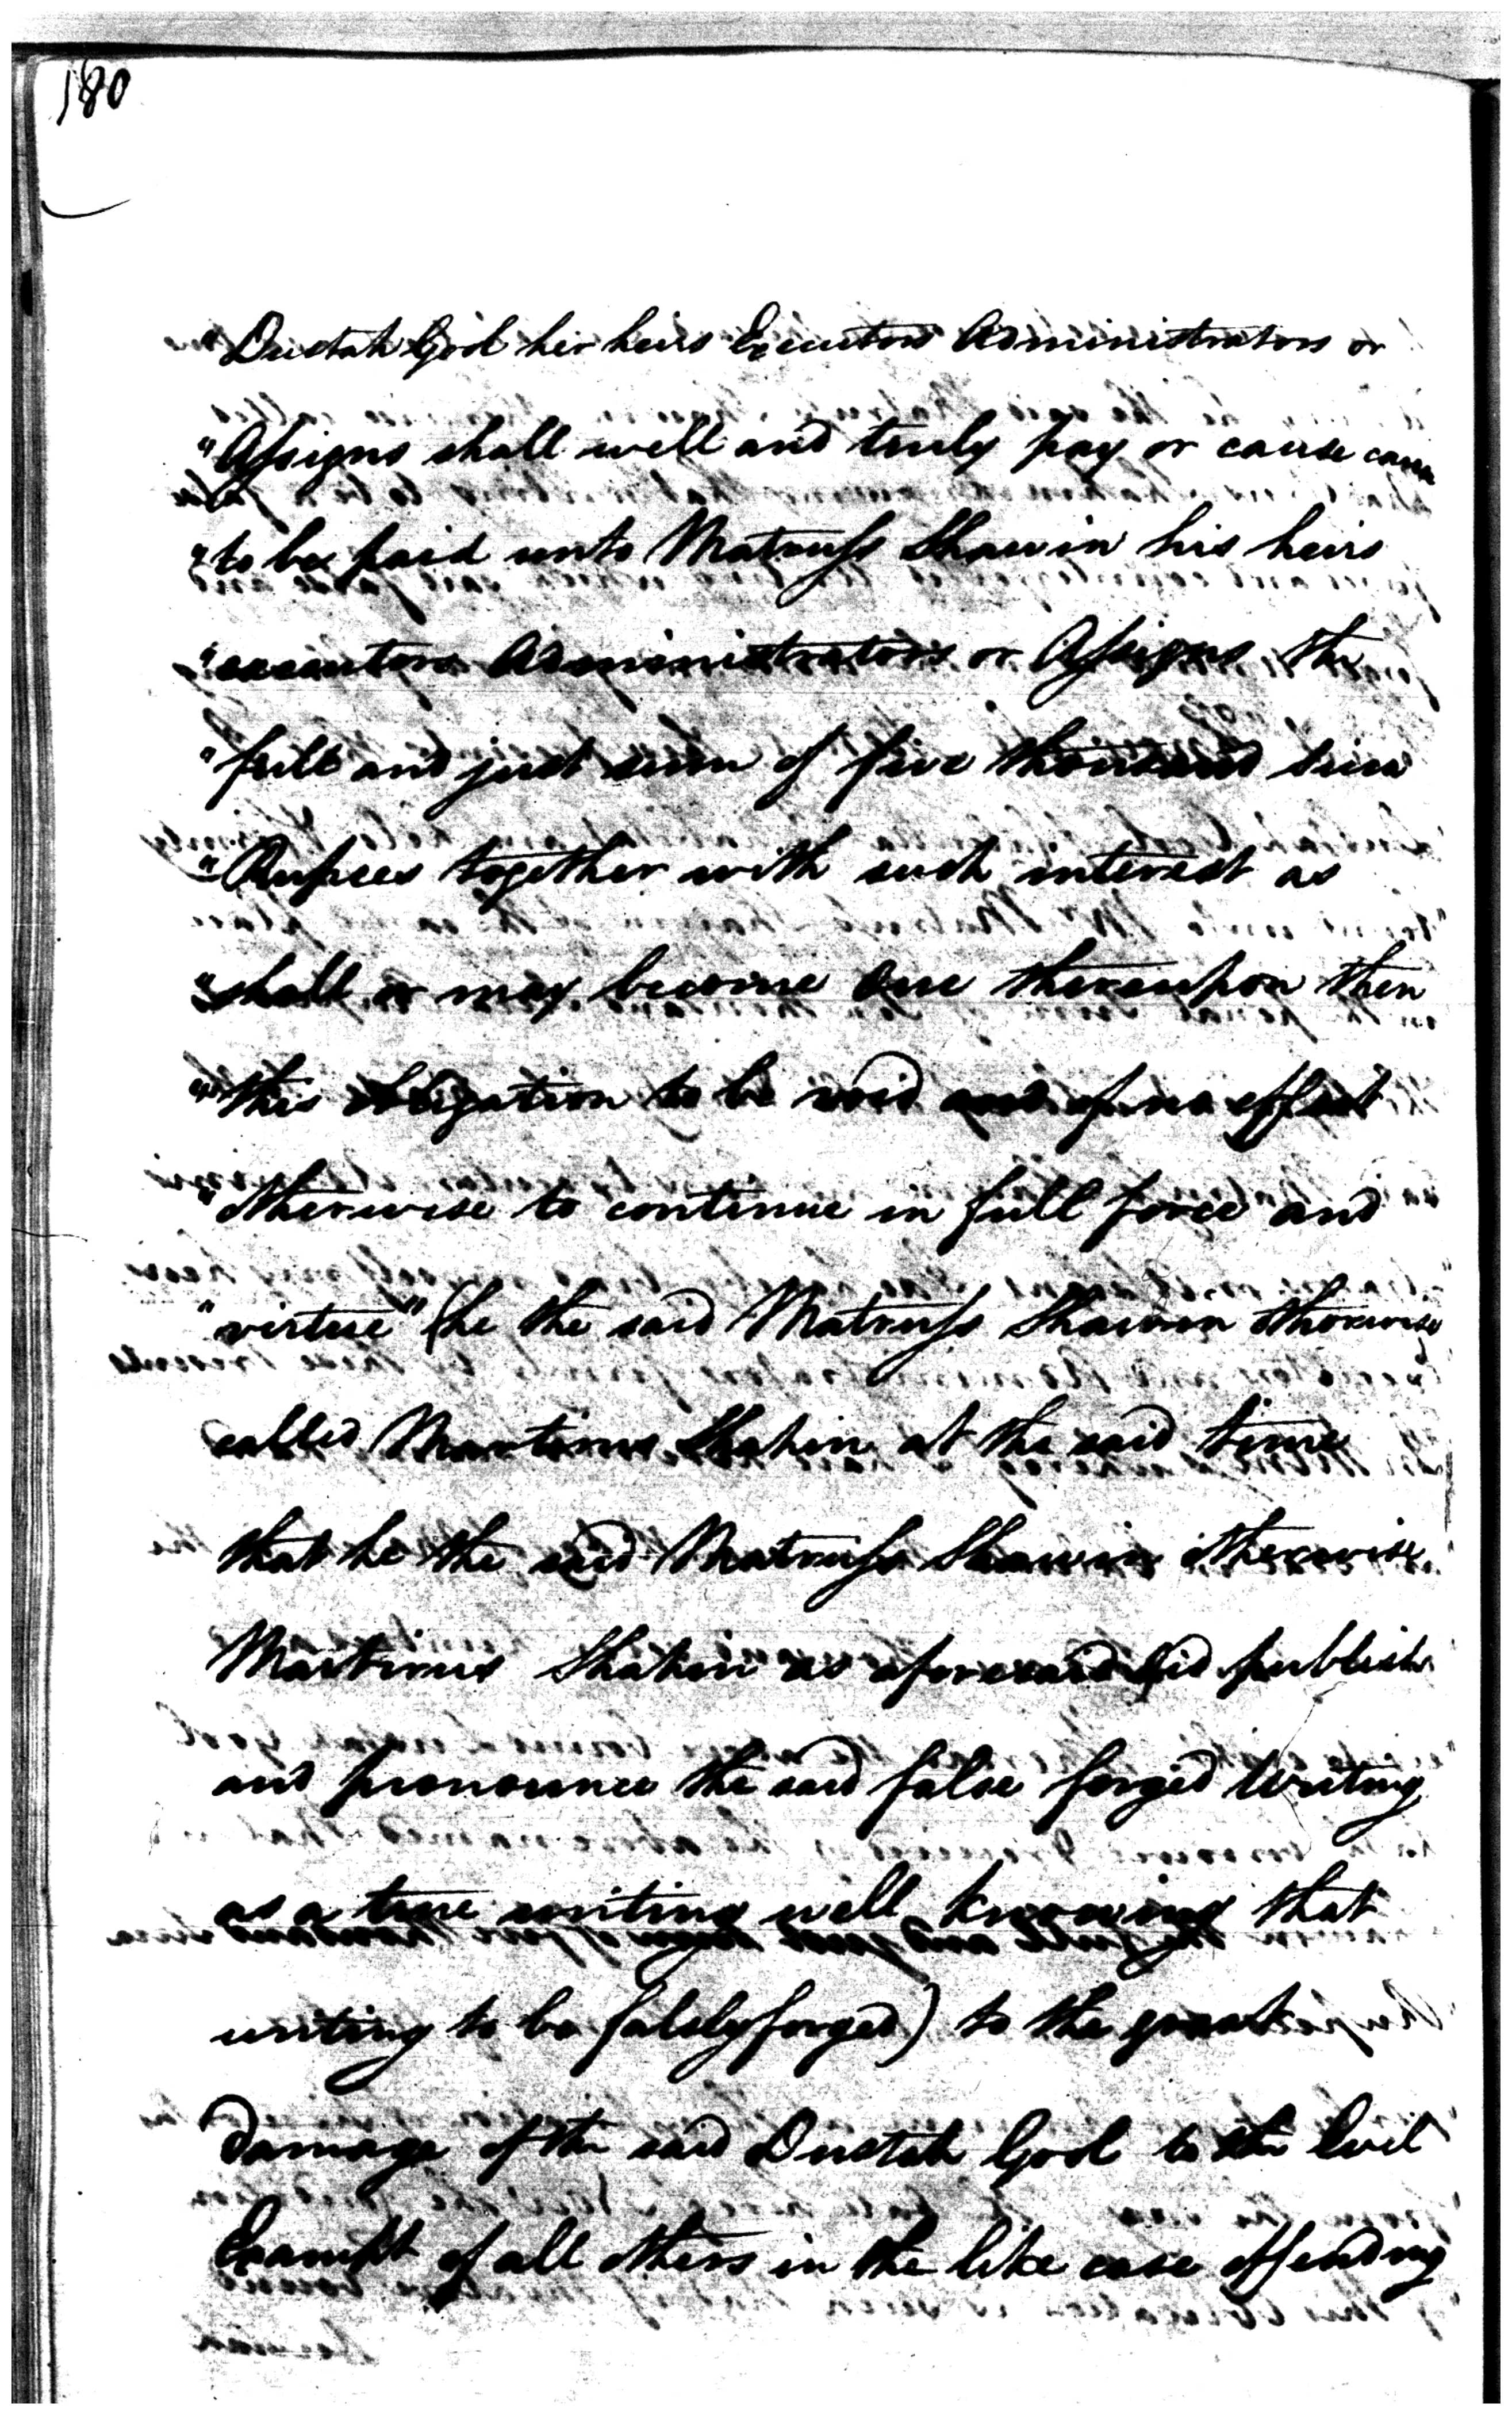 180
"Dustah Gool his heirs Executors Administrators or
"Assigns shall well and truly pay or cause cause
"to be paid unto Matruss Shawin his heirs
"executors Administrators or Assigns the
"full and just sum of five thousand Sicca
"Rupees together with such interest as
"shall or may become due thereupon then
"this obligation to be void and of no effect
"otherwise to continue in full force and
"virtue" (he the said Matruss Shawin otherwise
called Martirus Shahin at the said time
that he the said Matruss Shawin otherwise
Martirus Shahin as aforesaid did publish
and pronounce the said false forged Writing
as a true writing well knowing that
writing to be falsly forged) to the great
damage of the said Dustah Gool to the Evil
Example of all others in the like case offending